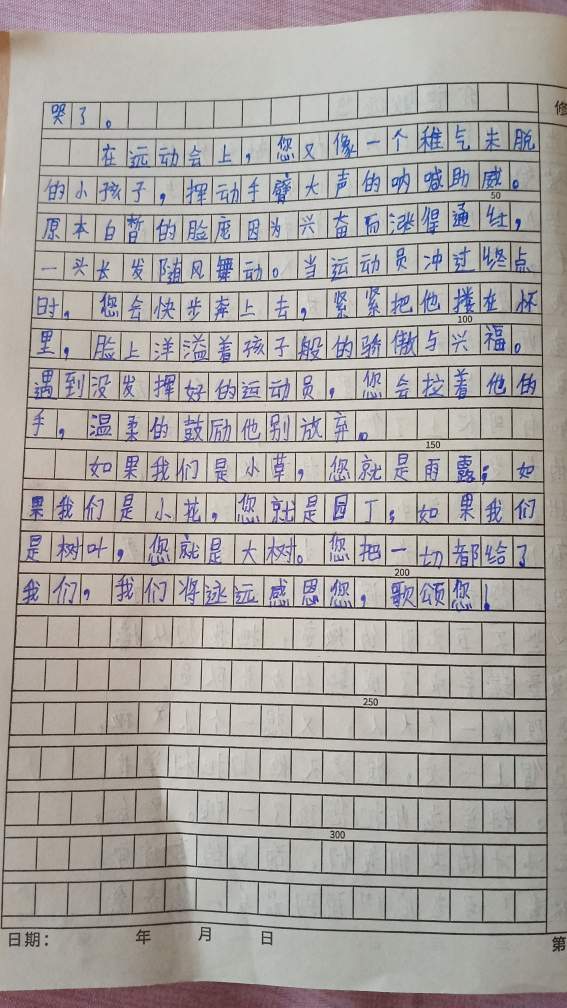 哭了。
修
在远动会上，您又像一个稚气未脱
的小孩子，挥动手臂大声的呐喊助威。
50
原本白皙的脸庞因为兴奋而涨得通红，
一头长发随风舞动。当运动员冲过终点
时，您会快步奔上去，紧紧把他搂在怀
100
里，脸上洋溢着孩子般的骄傲与兴福。
遇到没发挥好的运动员，您会拉着他的
手，温柔的鼓励他别放弃。
150
如果我们是小草，您就是雨露；如
果我们是小花，您就是园丁；如果我们
是树叶，您就是大树。您把一切都给了
200
我们，我们将永远感恩您，歌颂您！
250
300
日期： 年 月 日
第